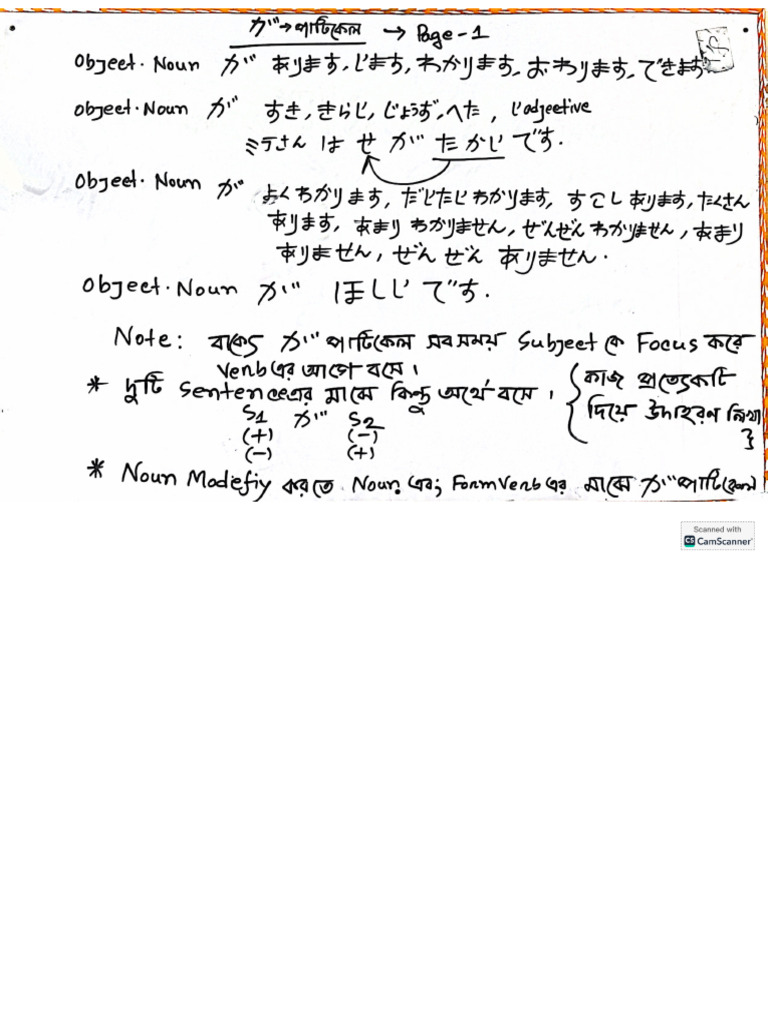 が→পার্টিকেল → Page-1
Object・Noun が あります、います、わかります、おわります、できます
Object・Noun が すき、きらい、じょうず、へた、い adjective
ミラさん は せ が たかい です.
Object・Noun が よくわかります、だいたいわかります、すこしあります、たくさん
あります、あまりわかりません、ぜんぜんわかりません、あまり
ありません、ぜんぜん ありません.
Object・Noun が ほしい です.
Note: বাক্যে が পার্টিকেল সব সময় Subject কে Focus করে
Verb এর আগে বসে।
* দুটি Sentence এর মাঝে কিন্তু অর্থে বসে। { কাজ প্রত্যেকটি
দিয়ে উদাহরণ লিখা }
S1 が S2
(+) (-)
(-) (+)
* Noun Modefiy করতে Noun এবং Form Verb এর মাঝে が পার্টিকেল
Scanned with
CS CamScanner